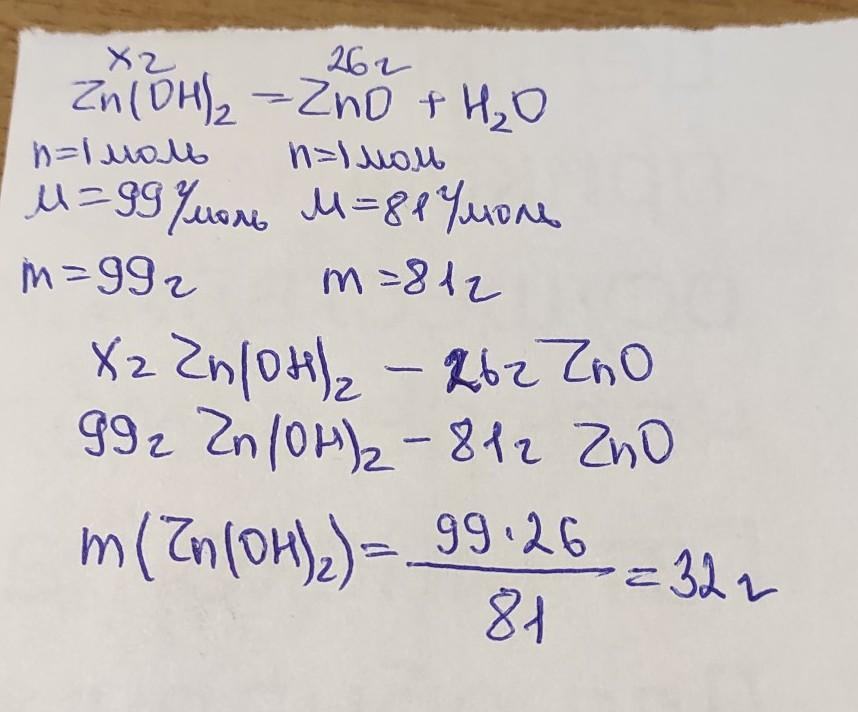 x г 26 г
Zn(OH)₂ = ZnO + H₂O
n=1 моль n=1 моль
M=99 г/моль M=81 г/моль
m=99 г m=81 г
x г Zn(OH)₂ - 26 г ZnO
99 г Zn(OH)₂ - 81 г ZnO
m(Zn(OH)₂) = 99·26 / 81 = 32 г